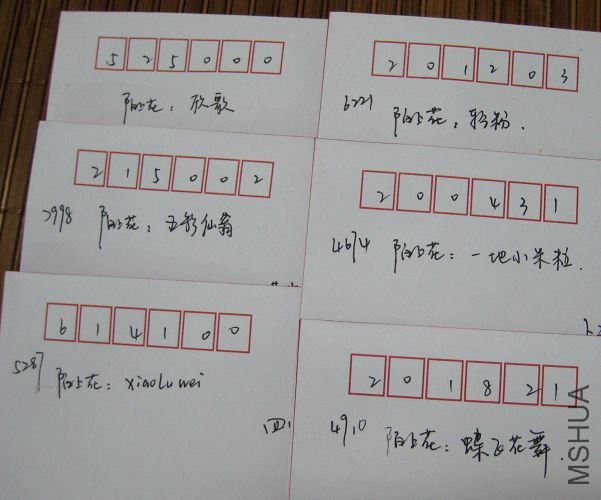 525000
阳台花：欣歌
201203
6221
阳台花：轻粉.
215002
7998
阳台花：五彩仙翁
200431
4674
阳台花：一地小米粒.
614100
5287
阳台花：xiaoluwei
四川
201821
4910
阳台花：蝶飞花舞.
MSHUA